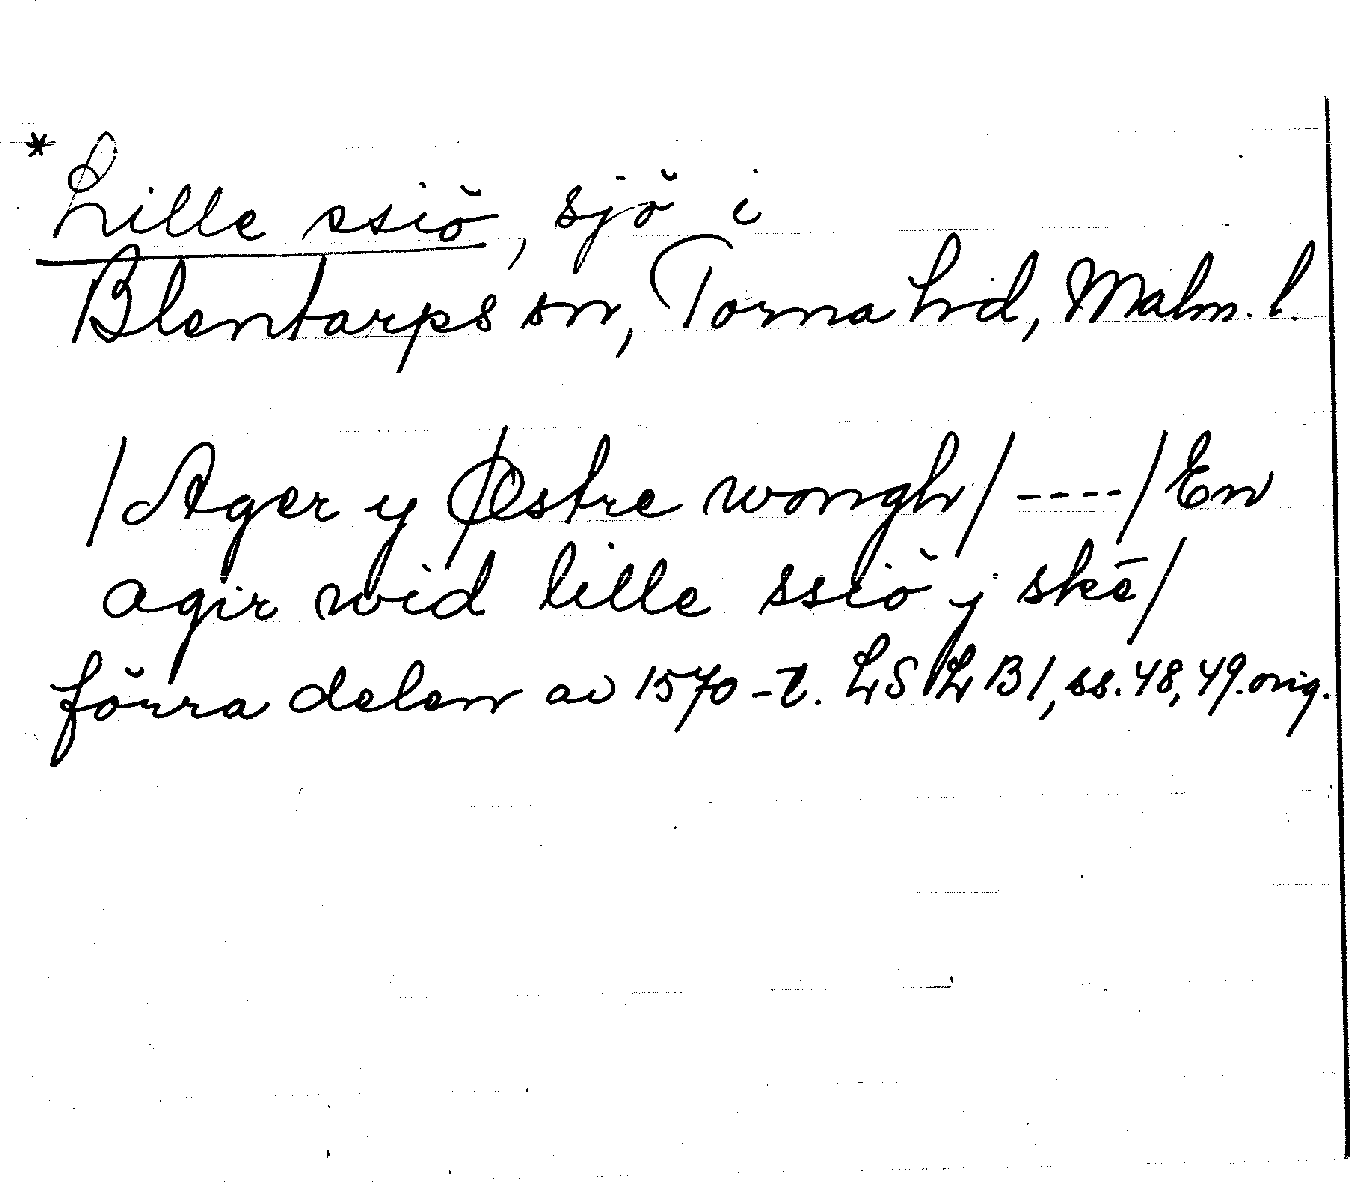 * Lille ssiö, sjö i
Blentarps sn, Torna hd, Malm. l.
/Ager y Østre wongh/ ---- /En
agir wid lille ssiö j skē/
förra delen av 1570-t. LSLB1, ss. 48, 49. orig.